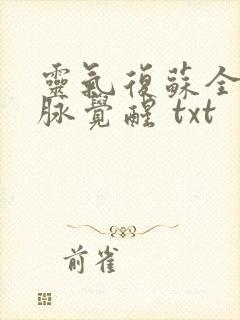 靈氣復蘇全
脈覺醒 txt
前雀